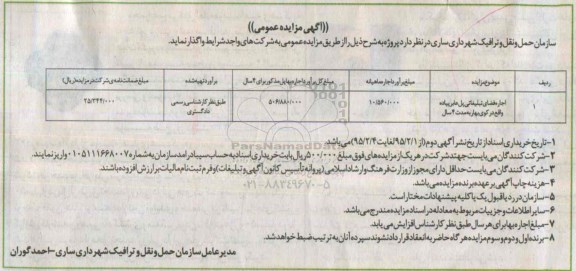 ((آگهی مزایده عمومی))
سازمان حمل و نقل و ترافیک شهرداری ساری در نظر دارد پروژه ی به شرح ذیل را از طریق مزایده عمومی به شرکت های واجد شرایط واگذار نماید.
ردیف موضوع مزایده مبلغ برآورد اجاره ماهیانه مبلغ کل برآورد اجاره بهای مذکور برای ۴ سال برآورد تهیه شده مبلغ ضمانت نامه ی شرکت در مزایده (ریال)
۱ اجاره فضای تبلیغاتی پل عابر پیاده واقع در کوی بهاره به مدت ۴ سال ۱۰/۵۶۰/۰۰۰ ۵۰۶/۸۸۰/۰۰۰ طبق نظر کارشناس رسمی دادگستری ۲۵/۳۴۴/۰۰۰
۱- تاریخ خریداری اسناد از تاریخ نشر آگهی دوم (از ۹۵/۲/۱ لغایت ۹۵/۲/۴) می باشد.
۲- شرکت کنندگان می بایست جهت شرکت در هر یک از مزایده های فوق مبلغ ۵۰۰/۰۰۰ ریال بابت خریداری اسناد به حساب سیبا درآمد سازمان به شماره ۰۱۰۵۱۱۱۶۶۸۰۰۷ واریز نمایند.
۳- شرکت کنندگان می بایست حداقل دارای مجوز از وزارت فرهنگ و ارشاد اسلامی (پروانه تأسیس کانون آگهی و تبلیغات) و فرم ثبت نام مالیات بر ارزش افزوده باشند.
۴- هزینه چاپ آگهی بر عهده برنده مزایده می باشد.
۵- سازمان در رد یا قبول یک یا کلیه پیشنهادات مختار است.
۶- سایر اطلاعات و جزییات مربوط به معامله در اسناد مزایده مندرج می باشد.
۷- مبلغ اجاره بها برای هر سال طبق نظر کارشناس افزایش می یابد.
۸- برنده اول و دوم و سوم مزایده هرگاه حاضر به انعقاد قرارداد نشوند سپرده آنان به ترتیب ضبط خواهد شد.
مدیر عامل سازمان حمل و نقل و ترافیک شهرداری ساری - احمد گوران
ParsNamadData
۰۲۱-۸۸۳۴۹۶۷۰-۵